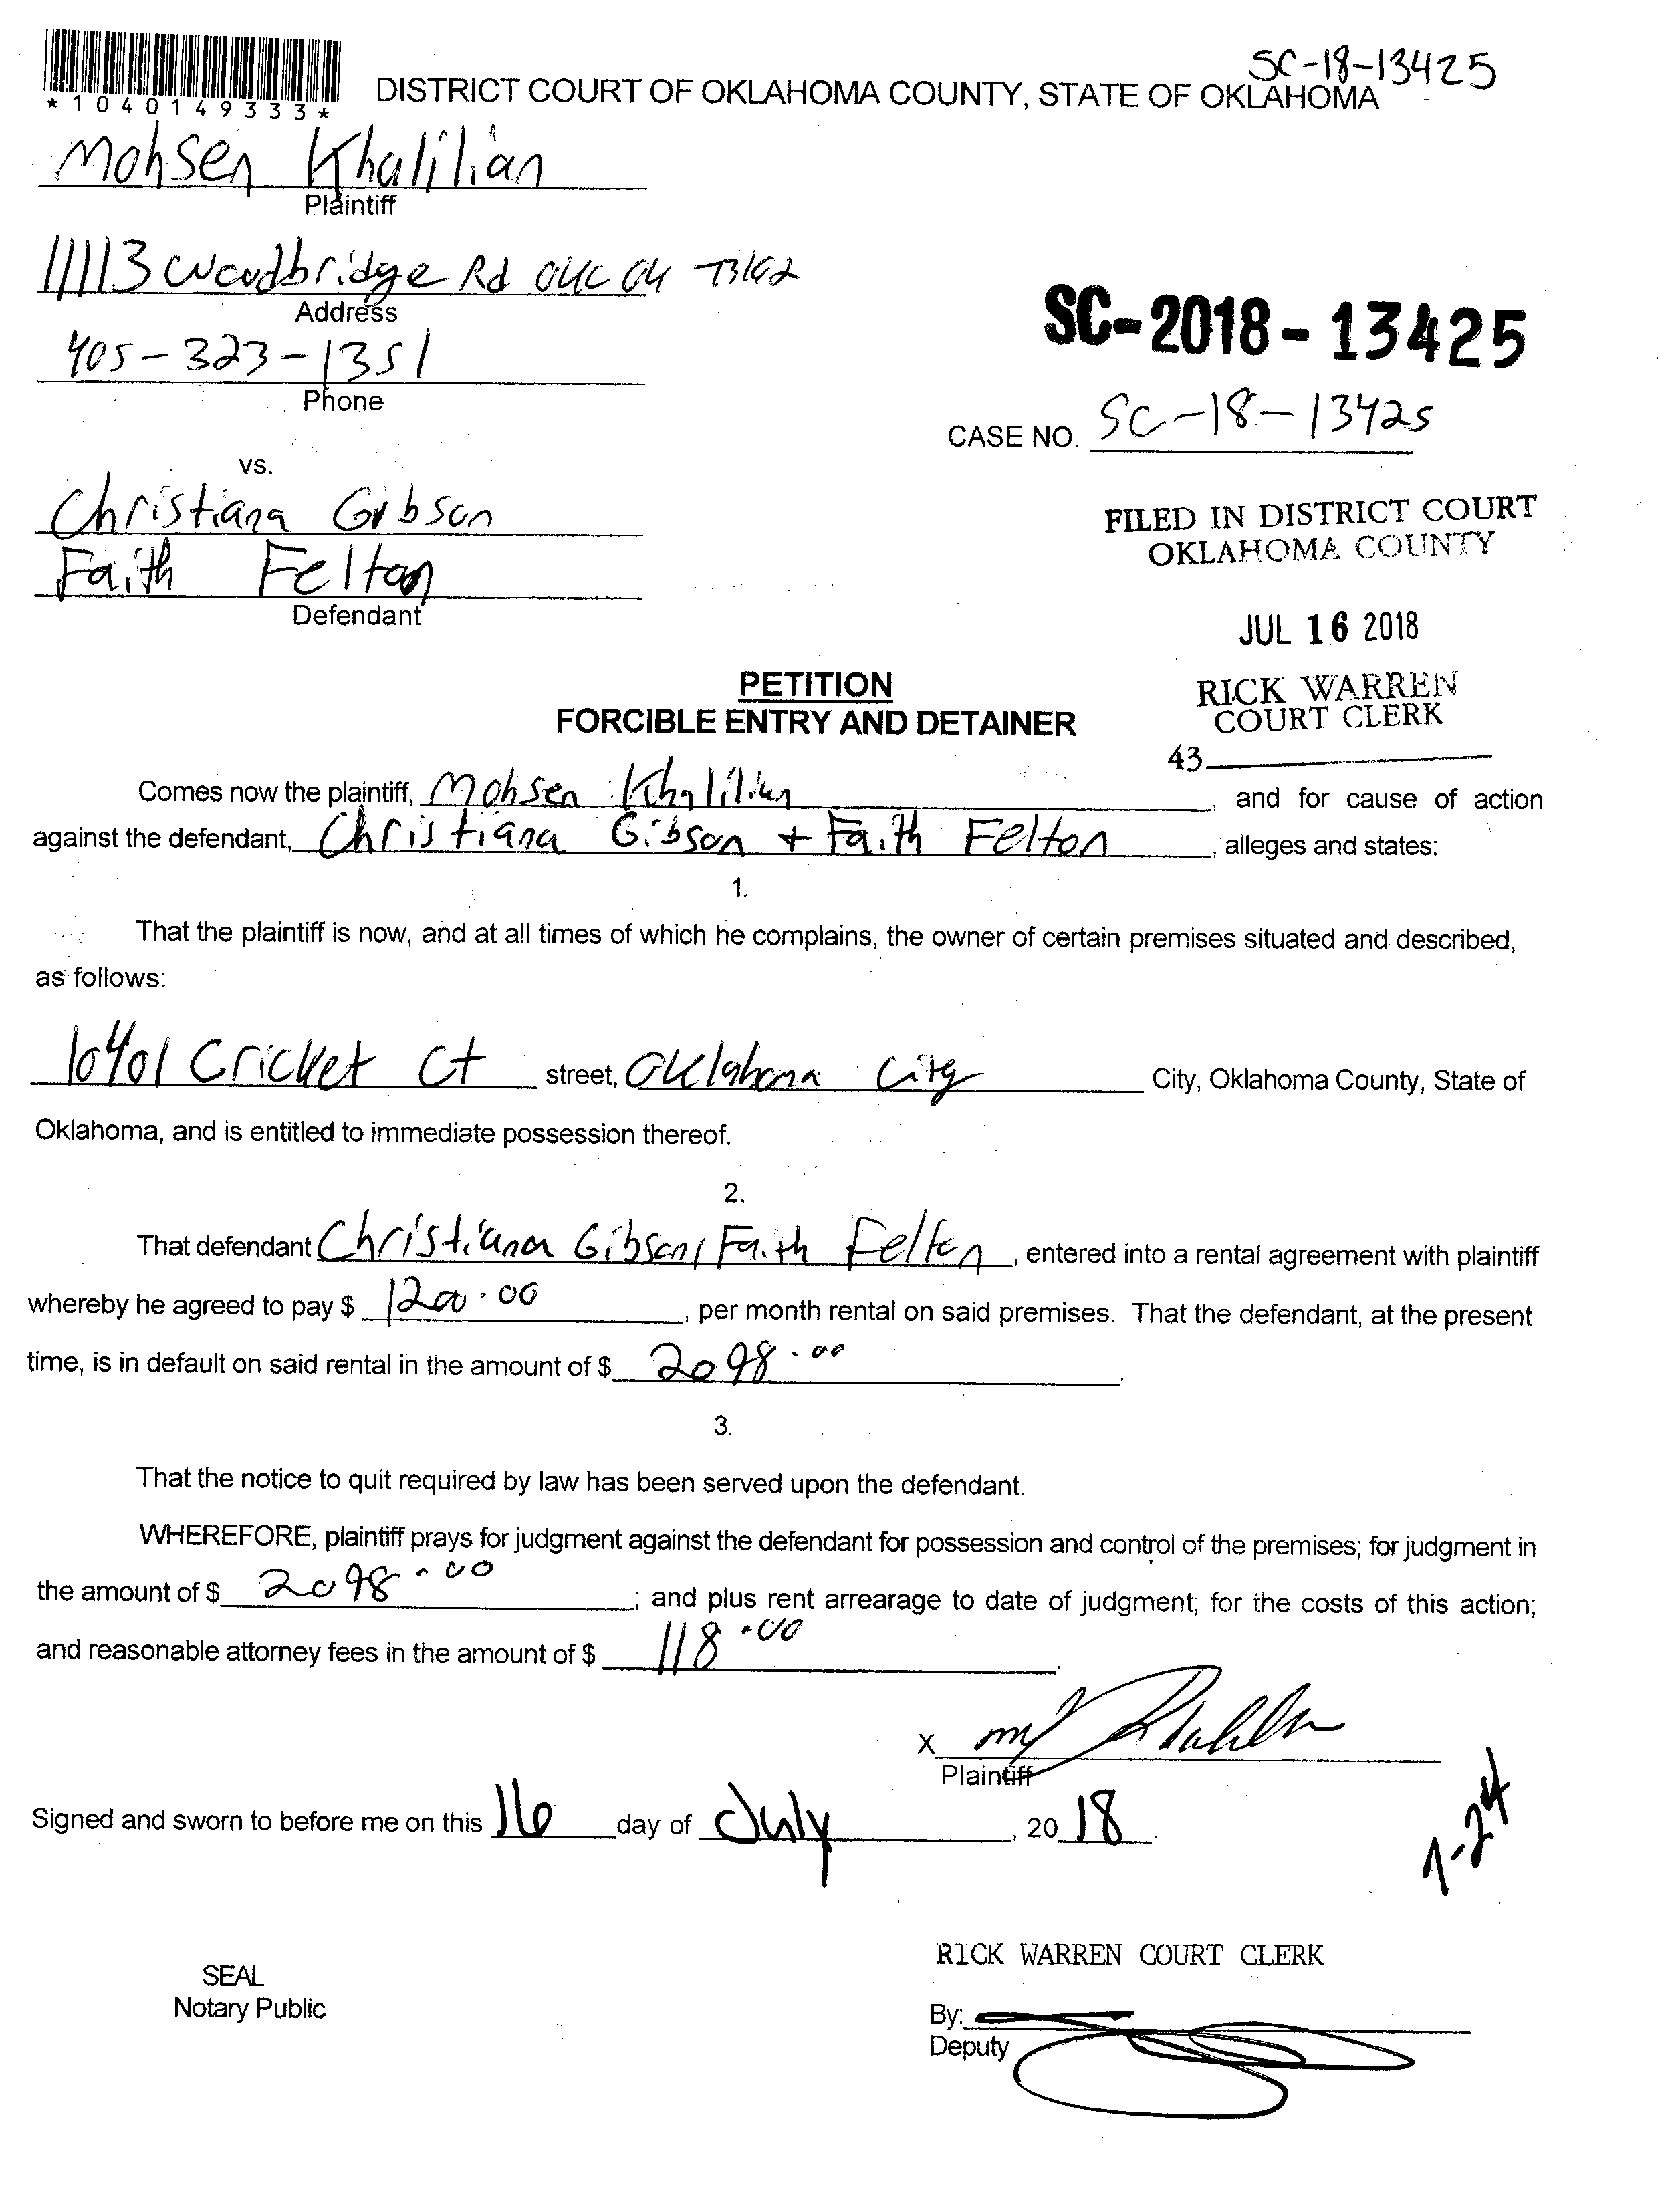 SC-18-13425
*1040149333*
DISTRICT COURT OF OKLAHOMA COUNTY, STATE OF OKLAHOMA
Mohsen Khalilian
Plaintiff
11113 Woodbridge Rd OKC OK 73162
Address
405-323-1351
Phone
SC-2018-13425
CASE NO. SC-18-13425
vs.
Christiana Gibson
Faith Felton
Defendant
FILED IN DISTRICT COURT
OKLAHOMA COUNTY
JUL 16 2018
RICK WARREN
COURT CLERK
43
PETITION
FORCIBLE ENTRY AND DETAINER
Comes now the plaintiff, Mohsen Khalilian, and for cause of action
against the defendant, Christiana Gibson + Faith Felton, alleges and states:
1.
That the plaintiff is now, and at all times of which he complains, the owner of certain premises situated and described,
as follows:
10401 Cricket Ct street, Oklahoma City City, Oklahoma County, State of
Oklahoma, and is entitled to immediate possession thereof.
2.
That defendant Christiana Gibson/Faith Felton, entered into a rental agreement with plaintiff
whereby he agreed to pay $ 1200.00, per month rental on said premises. That the defendant, at the present
time, is in default on said rental in the amount of $ 2098.00.
3.
That the notice to quit required by law has been served upon the defendant.
WHEREFORE, plaintiff prays for judgment against the defendant for possession and control of the premises; for judgment in
the amount of $ 2098.00; and plus rent arrearage to date of judgment; for the costs of this action;
and reasonable attorney fees in the amount of $ 118.00.
X
Plaintiff
Signed and sworn to before me on this 16 day of July, 2018.
7-24
RICK WARREN COURT CLERK
SEAL
Notary Public
By:
Deputy